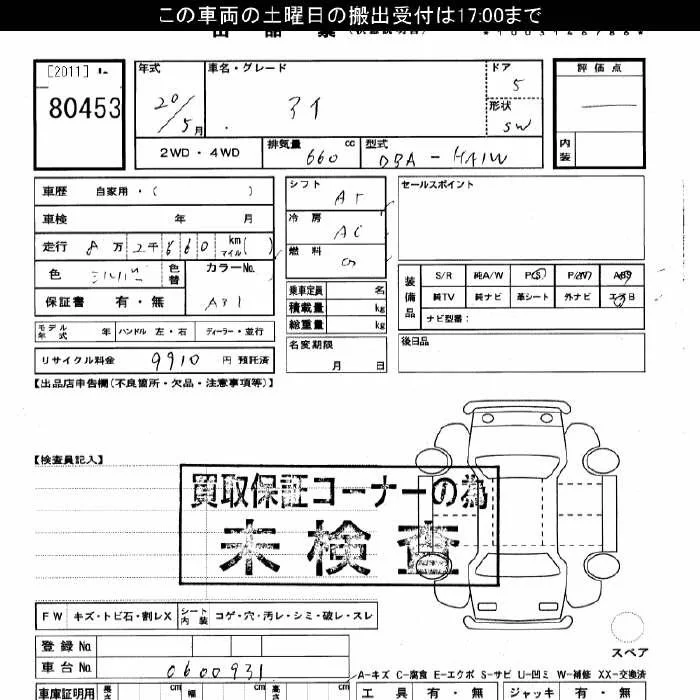 この車両の土曜日の搬出受付は17:00まで
出品票
[2011]
80453
年式 車名・グレード ドア 評価点
20/5月 アイ 5
形状 SW
2WD・4WD 排気量 660 cc 型式 DBA-HA1W 内装
車歴 自家用・( )
車検 年 月
走行 8万2千660km マイル( )
色 シルバー 色替 カラーNo. A31
保証書 有・無
モデル年式 年 ハンドル 左・右 ディーラー・並行
リサイクル料金 9910 円 預託済
シフト AT
冷房 AC
燃料 G
乗車定員 名
積載量 kg
総重量 kg
名変期限
月 日
セールスポイント
装備品 S/R 純A/W P(S) P/W ABS
純TV 純ナビ 革シート 外ナビ エアB
ナビ型番:
後日品
【出品店申告欄(不良箇所・欠品・注意事項等)】
【検査員記入】
買取保証コーナーの為
未検査
FW キズ・トビ石・割レX シート内装 コゲ・穴・汚レ・シミ・破レ・スレ
登録No.
車台No. 0600931
スペア
A-キズ C-腐食 E-エクボ S-サビ U-凹ミ W-補修 XX-交換済
車庫証明用 長さ cm 幅 cm 高さ cm 工具 有・無 ジャッキ 有・無